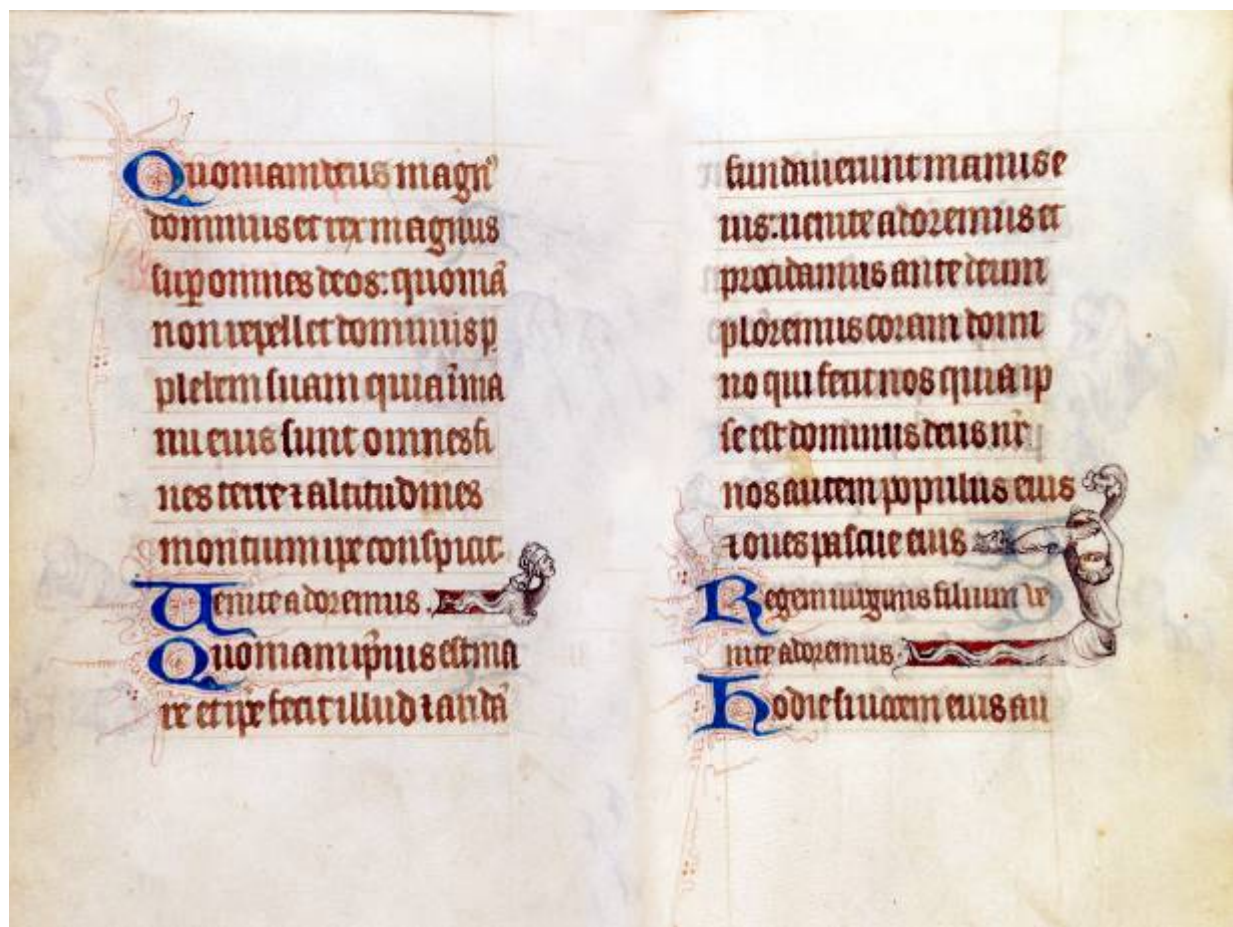 Quoniam deus magn᷒
dominus et rex magnus
sup̱ omnes deos: quoniā
non repellet dominus p
plebem suam quia ī ma
nu eius sunt omnes fi
nes terre ⁊ altitudines
montium ipe conspicit
Venite adoremus.
Quoniam ip̄ius est ma
re et ipe fecit illud ⁊ aridā
fundauerunt manus e
ius: uenite adoremus et
procidamus ante deum
ploremus coram domi
no qui fecit nos quia ip
se est dominus deus nr̄
nos autem populus eius
⁊ oues pascue eius
Regem uirginis filium ve
nite adoremus.
Hodie si uocem eius au